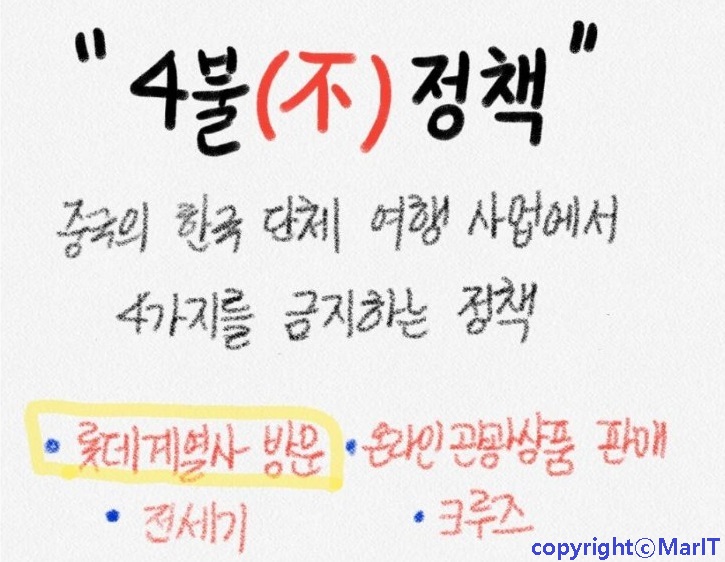 "4불(不)정책"
중국의 한국 단체 여행 사업에서
4가지를 금지하는 정책
• 롯데계열사 방문 • 온라인관광상품 판매
• 전세기 • 크루즈
copyright©MarIT